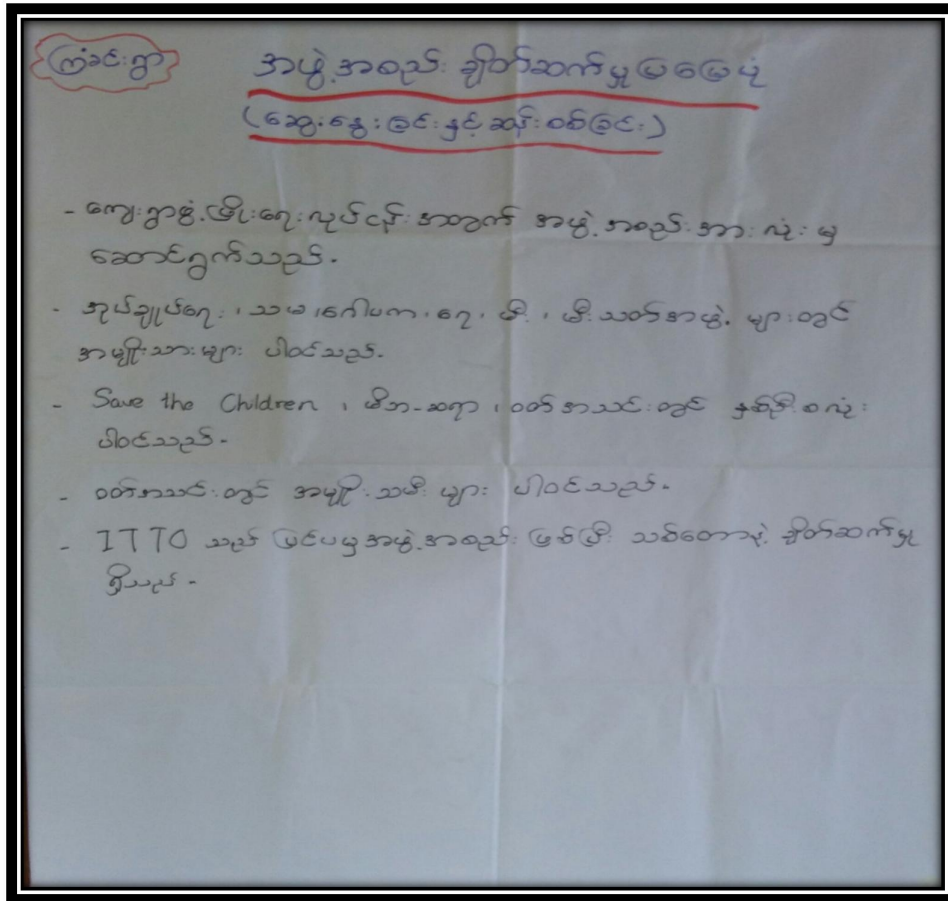 ကြံခင်းရွာ
အဖွဲ့အစည်း ချိတ်ဆက်မှုပြမြေပုံ
(ဆွေးနွေးခြင်းနှင့်ဆန်းစစ်ခြင်း)
- ကျေးရွာဖွံ့ဖြိုးရေးလုပ်ငန်းအတွက် အဖွဲ့အစည်းအားလုံးမှ
ဆောင်ရွက်သည်။
- အုပ်ချုပ်ရေး၊ သမ၊ ဂေါပက၊ ရေ၊ မီး၊ မီးသတ်အဖွဲ့များတွင်
အမျိုးသားများ ပါဝင်သည်။
- Save the Children ၊ မိဘ-ဆရာ ၊ ဝတ်အသင်းတွင် နှစ်ဦးစလုံး
ပါဝင်သည်။
- ဝတ်အသင်းတွင် အမျိုးသမီးများ ပါဝင်သည်။
- ITTO သည် ပြင်ပမှအဖွဲ့အစည်းဖြစ်ပြီး သစ်တောနဲ့ ချိတ်ဆက်မှု
ရှိသည်။